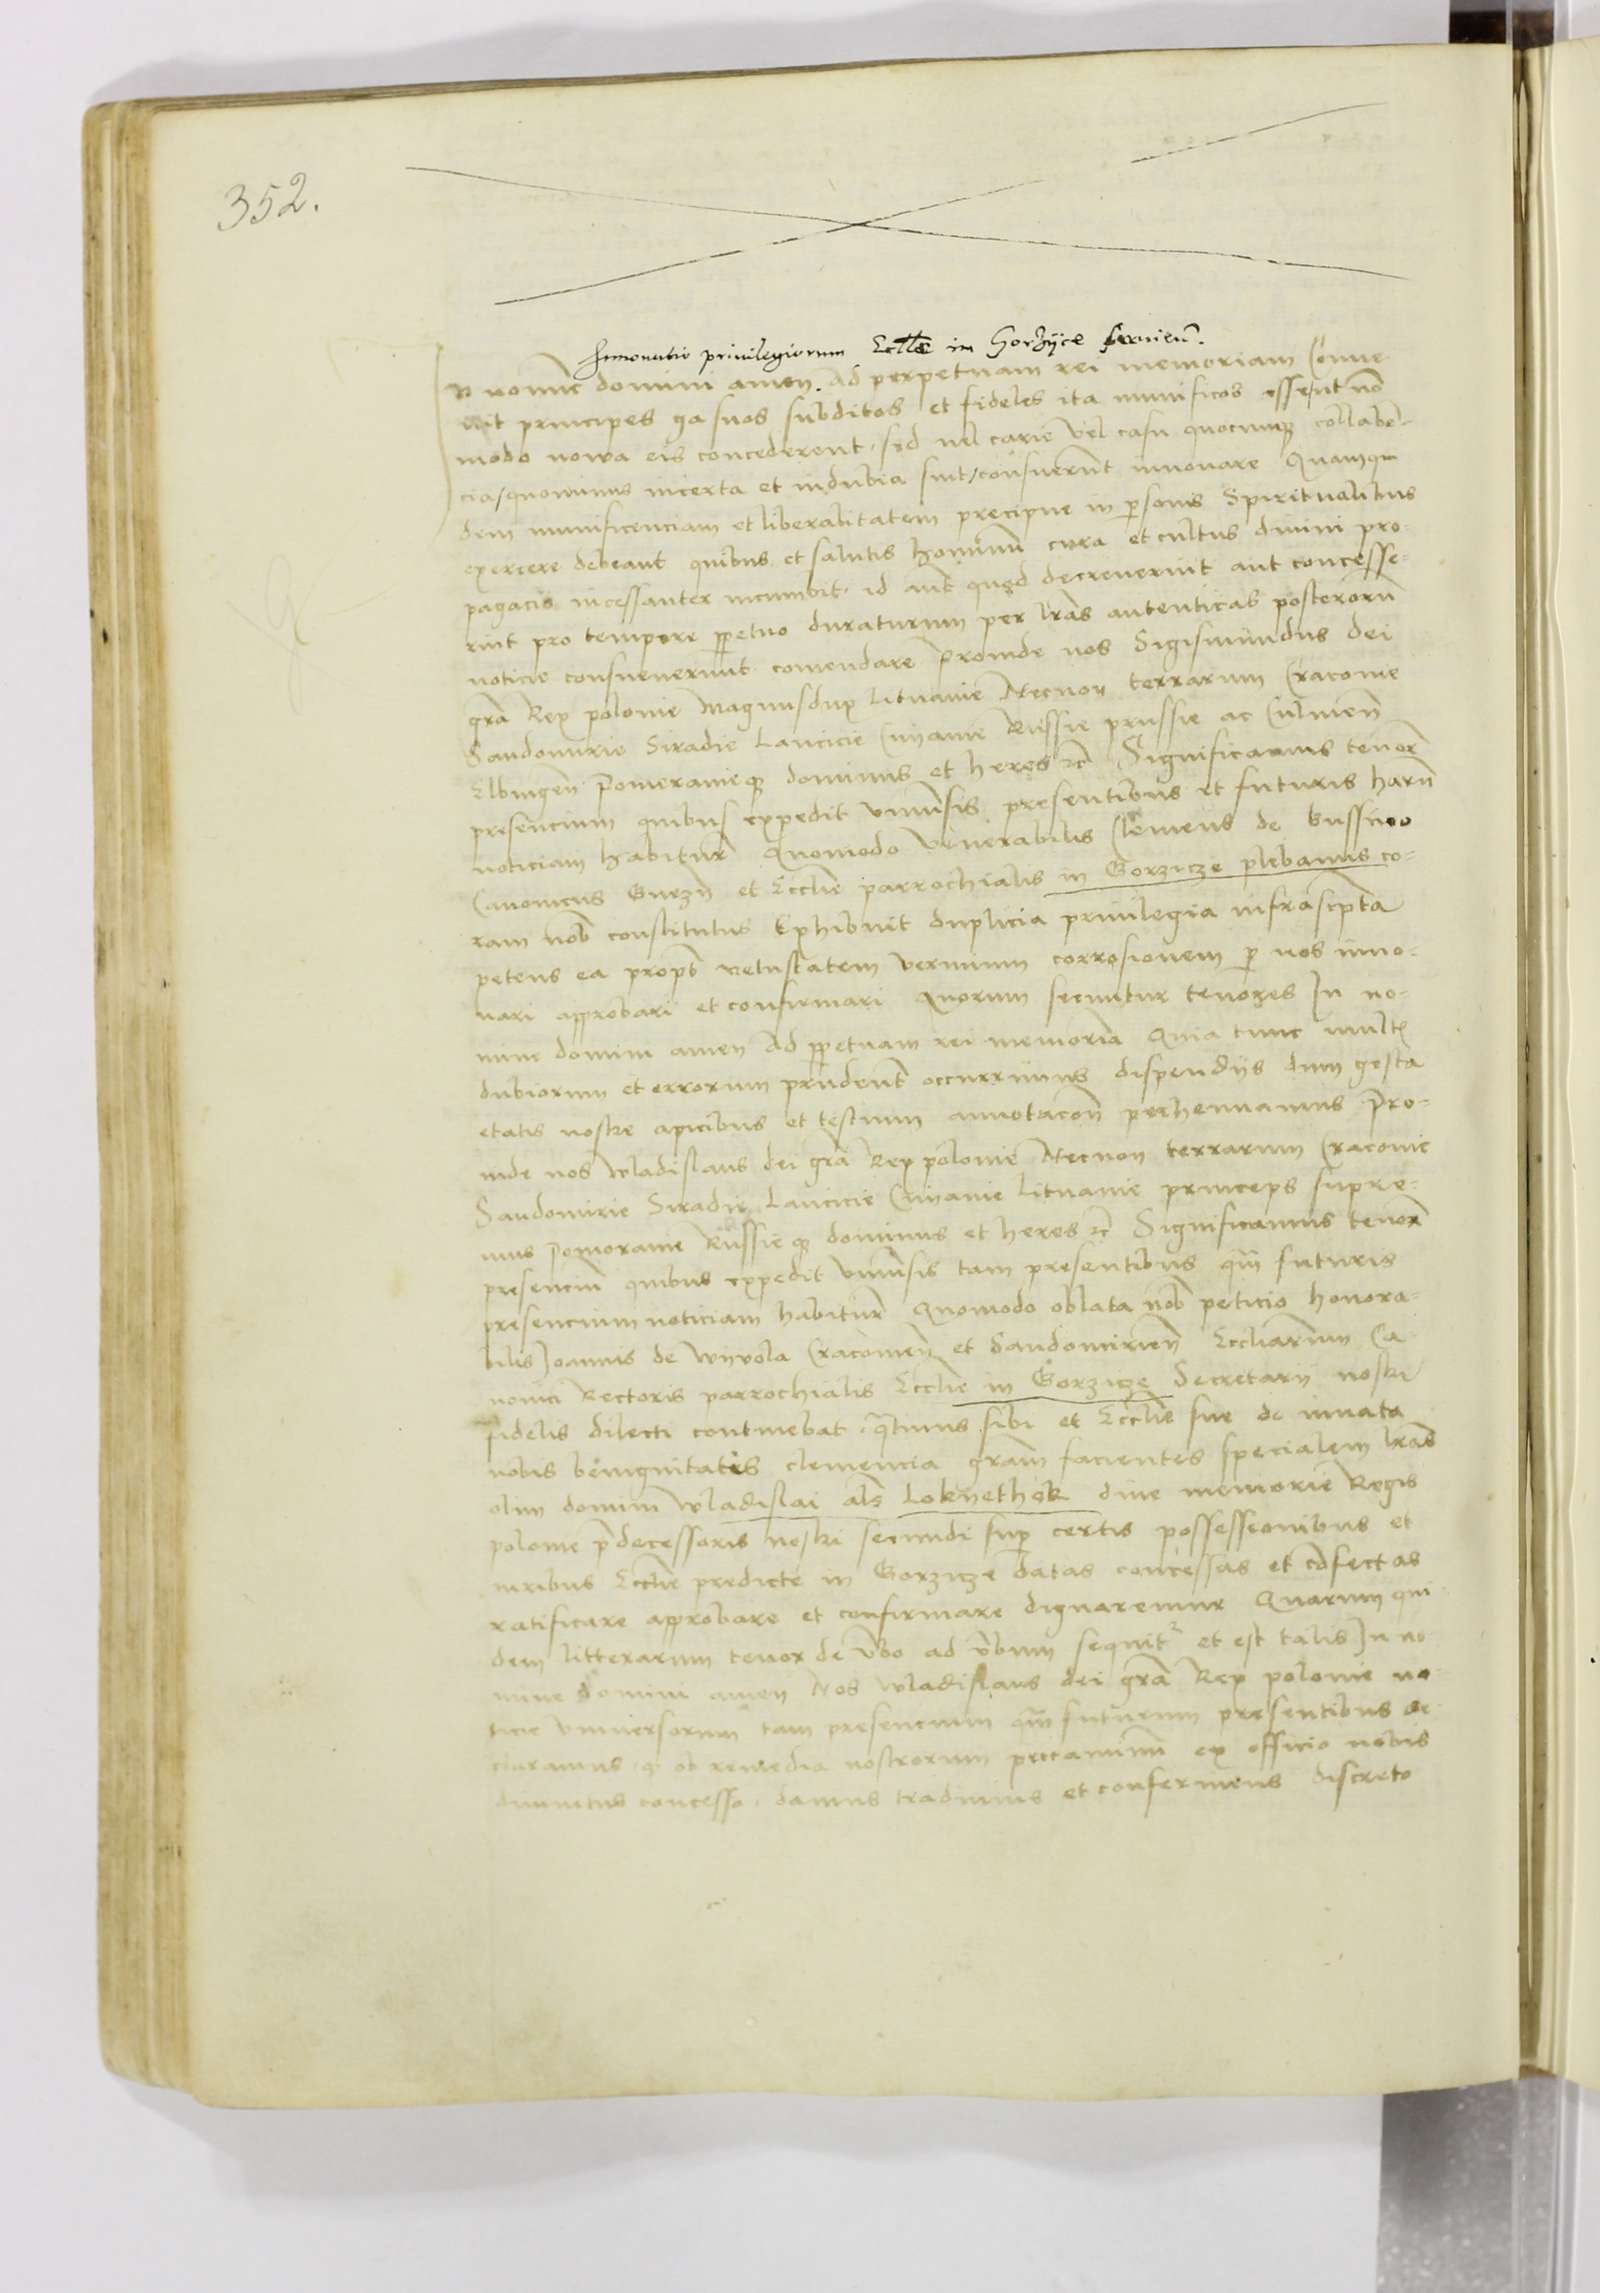 352.
Innouatio priuilegiorum Eccłe in Gorzÿce seruieñ.
In nomine domini amen. Ad perpetuam rei memoriam Conue
nit principes ga suos subditos et fideles ita munificos esse / ut nō
modo nowa eis concederent, sed vel carie vel casu quocumqȝ collaben-
cia / quominus incerta et in dubia sint / consueuerunt innouare Quamqui
dem munificenciam et liberalitatem precipue in p̄sonis Spiritualibus
exercere debeant quibus et salutis hominū cura et cultus diuini pro-
pagacio incessanter incumbit. id aut̄ quod decreuerint aut concesse-
rint pro tempore p̄petuo duraturum per l̄ras autenticas posterorū
noticie consueuerunt comendare Proinde nos Sigismundus dei
gr̄a Rex polonie Magnusdux Lituanie Necnon terrarum Cracouie
Sandomirie Siradie Lancicie Cuyauie Russie prussie ac Culmeñ
Elbingeñ Pomeranieqȝ dominus et heres ꝛc̄ Significamus tenor̄
presencium quibus expedit vniuersis presentibus et futuris harū
noticiam habitur̄ Quomodo venerabilis Clemens de Bussnoo
Canonicus Gnezñ et Eccłie parrochialis in Gorzicze plebanus co-
ram nob̄ constitutus Exhibuit duplicia priuilegia infrascp̄ta
petens ea propt̄ vetustatem vermium corrosionem p̄ nos inno-
uari approbari et confirmari Quorum secuntur tenores In no-
mine domini amen Ad p̄petuam rei memoriā Quia tunc mult̄
dubiorum et errorum prudent̄ occurrimus dispendÿs dum gesta
etatis nostre apicibus et testium annotacoñ perhennamus Pro-
inde nos Wladislaus dei gr̄a Rex polonie Necnon terrarum Cracouie
Sandomirie Siradie Lancicie Cuiauie Lituanie princeps supre-
mus Pomoranie Russieqȝ dominus et heres ꝛc̄ Significamus tenor̄
presenciū quibus expedit vniuersis tam presentibus qm̄ futuris
presencium noticiam habitur̄ Quomodo oblata nob̄ peticio honora-
bilis Joannis de Wyvola Cracouieñ et Sandomirieñ Eccliarum Ca-
nonici Rectoris parrochialis Eccłie in Gorzicze Secretarÿ nostri
fidelis dilecti continebat. q̄tinus sibi et Eccłie sue de innata
nobis benignitatis clemencia gram̄ facientes specialem l̄ras
olim domini Wladislai als̄ Loknethek diue memorie Regis
polonie p̄decessoris nostri secundi sup̄ certis possessionibus et
iuribus Eccłie predicte in Gorzicze datas concessas et cōfectas
ratificare approbare et confirmare dignaremur Quarum qui
dem litterarum tenor de v̄bo ad v̄bum sequit̄ et est talis In no
mine domini amen Nos Wladislaus dei gr̄a Rex polonie no
ticie vniuersorum tam presencium qm̄ futurum presentibus de
claramus. q ob remedia nostrorum peccaminū ex officio nobis
diuinitus concesso. damus tradimus et conferimus discreto